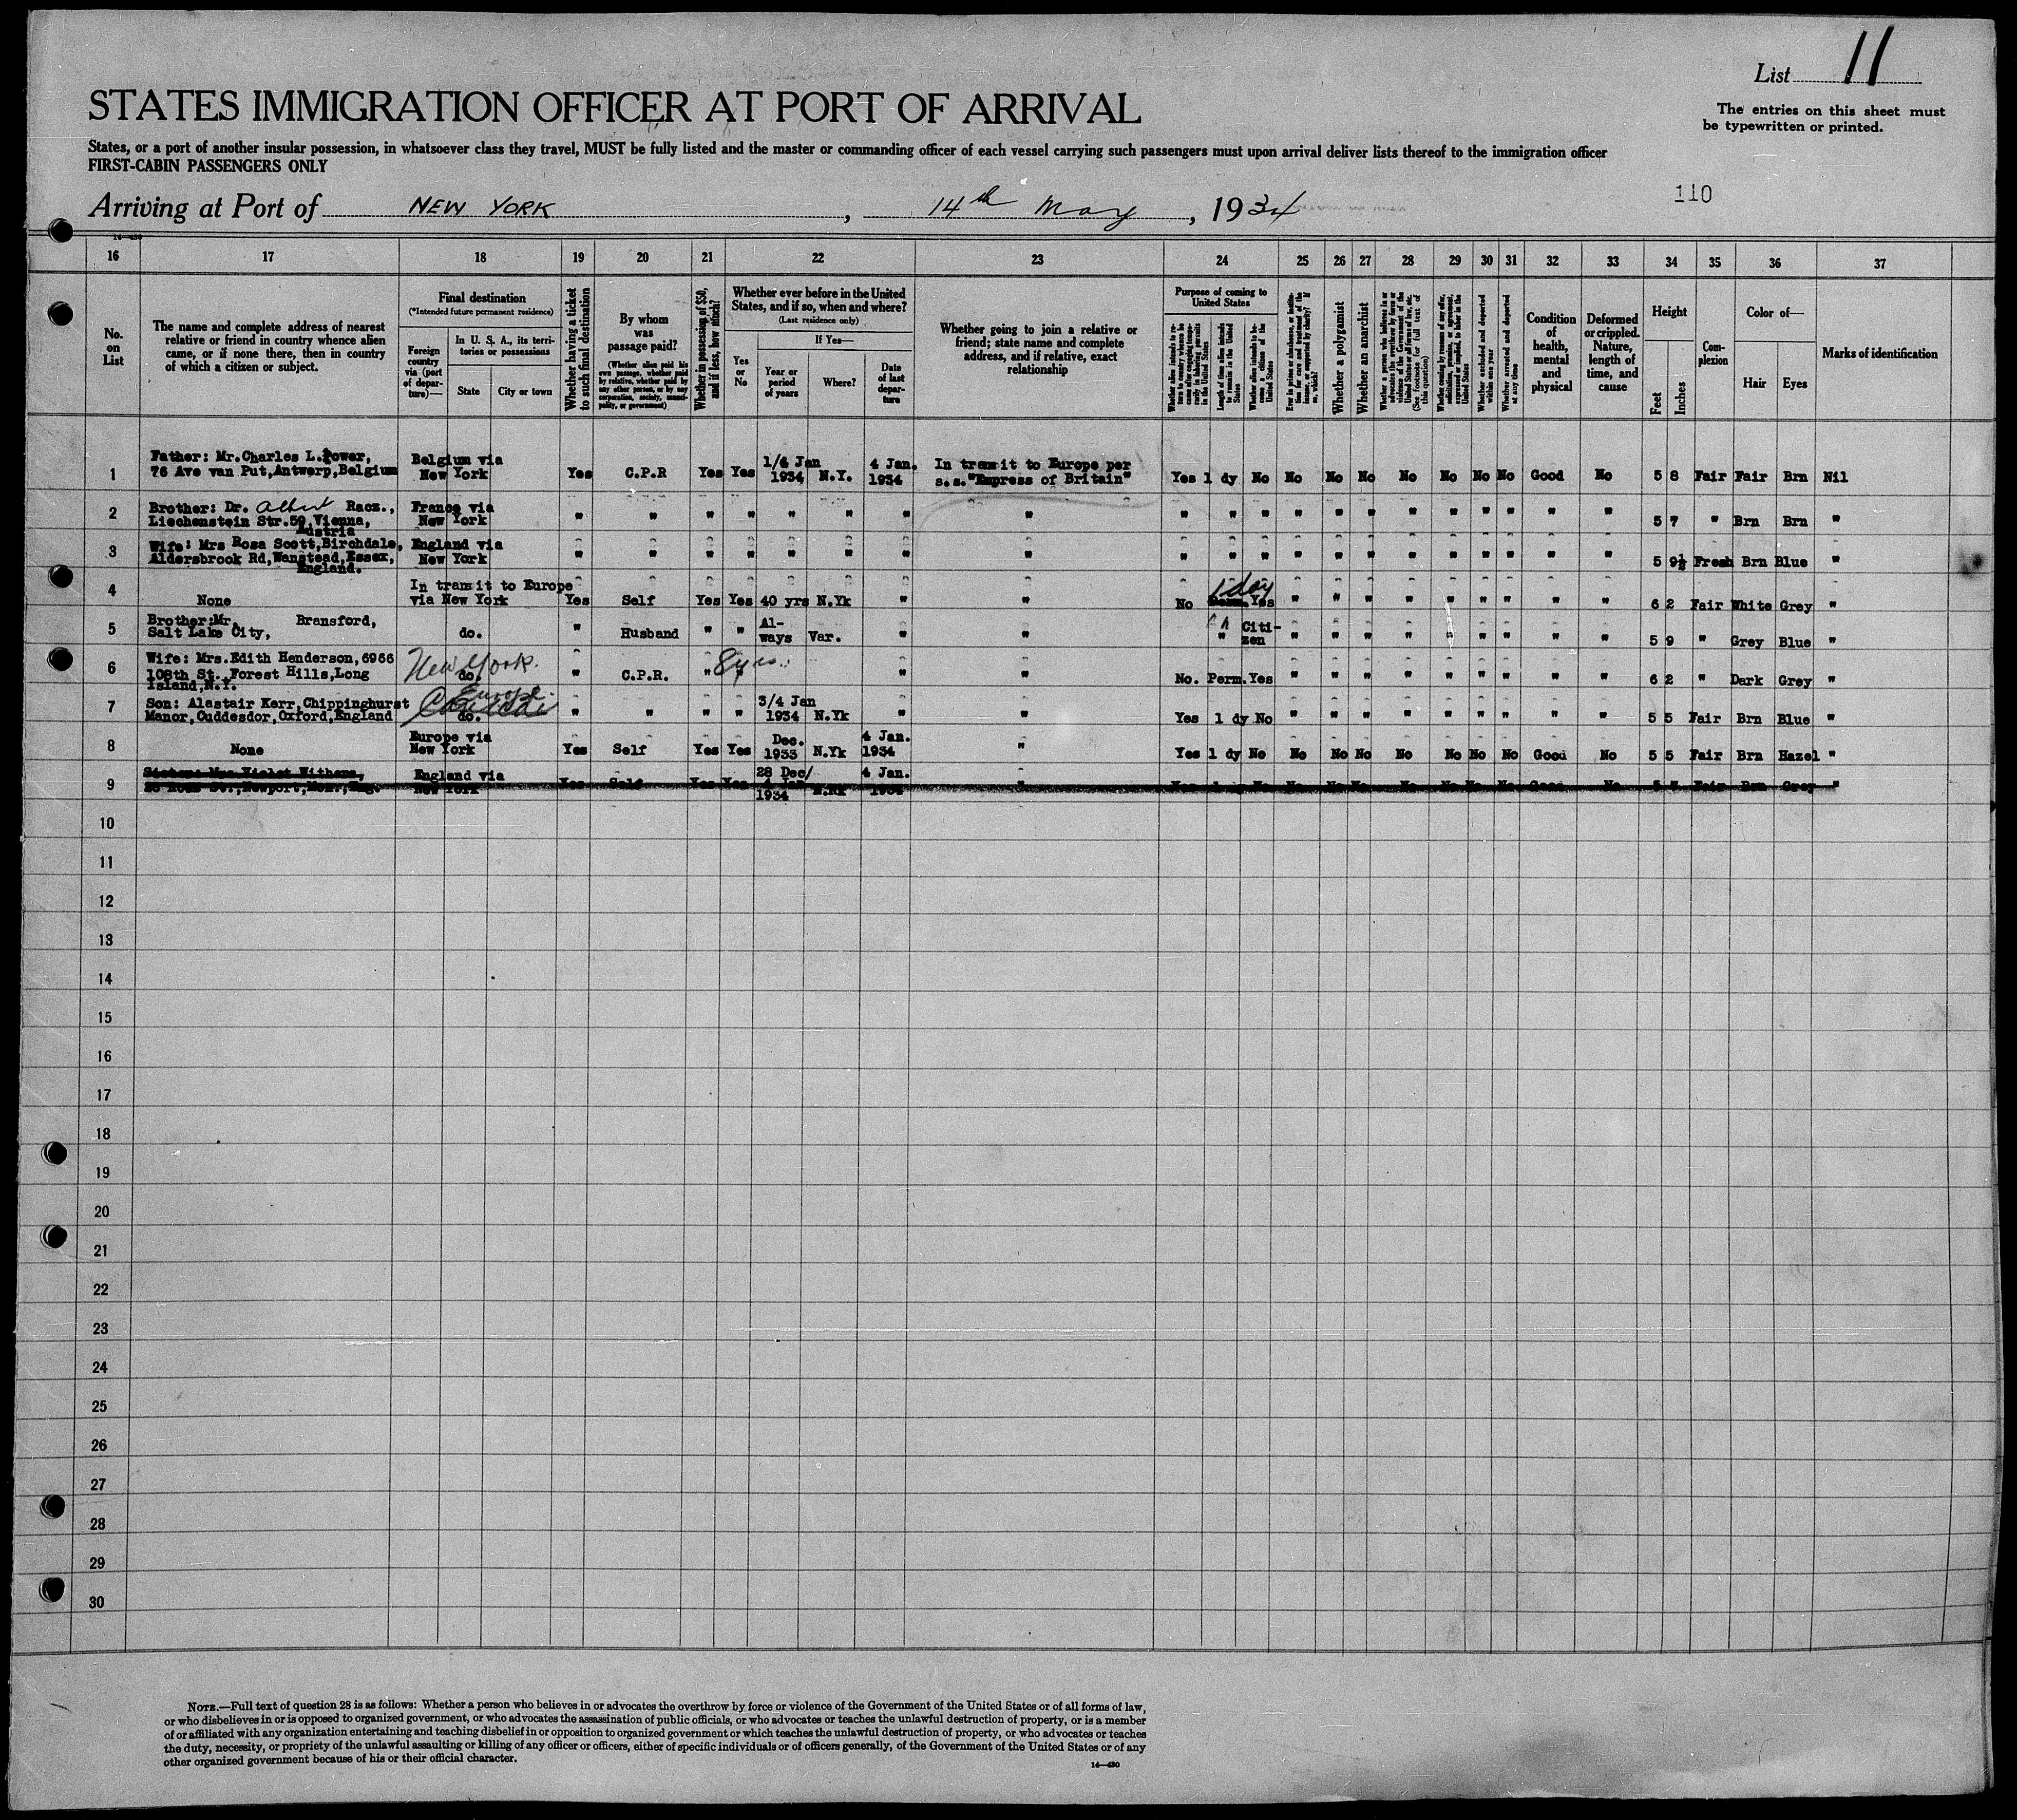 List 11
STATES IMMIGRATION OFFICER AT PORT OF ARRIVAL
The entries on this sheet must
be typewritten or printed.
States, or a port of another insular possession, in whatsoever class they travel, MUST be fully listed and the master or commanding officer of each vessel carrying such passengers must upon arrival deliver lists thereof to the immigration officer
FIRST-CABIN PASSENGERS ONLY
110
Arriving at Port of NEW YORK, 14th May, 1934
14—430
16 17 18 19 20 21 22 23 24 25 26 27 28 29 30 31 32 33 34 35 36 37
No. on List
The name and complete address of nearest
relative or friend in country whence alien
came, or if none there, then in country
of which a citizen or subject.
Final destination
(*Intended future permanent residence)
Foreign country via (port of departure)—
In U. S. A., its territories or possessions
State
City or town
Whether having a ticket to such final destination
By whom was passage paid?
(Whether alien paid his own passage, whether paid by relative, whether paid by any other person, or by any corporation, society, municipality, or government)
Whether in possession of $50, and if less, how much?
Whether ever before in the United
States, and if so, when and where?
(Last residence only)
Yes or No
If Yes—
Year or period of years
Where?
Date of last departure
Whether going to join a relative or
friend; state name and complete
address, and if relative, exact
relationship
Purpose of coming to United States
Length of time alien intends to remain in the United States
Whether alien intends to become a citizen of the United States
Whether a polygamist
Whether an anarchist
Whether excluded and deported within one year
Whether arrested and deported at any time
Condition of health, mental and physical
Deformed or crippled. Nature, length of time, and cause
Height
Feet
Inches
Complexion
Color of—
Hair
Eyes
Marks of identification
1 Father: Mr.Charles L.Power, 76 Ave van Put,Antwerp,Belgium Belgium via New York Yes C.P.R Yes Yes 1/4 Jan 1934 N.Y. 4 Jan. 1934 In transit to Europe per s.s."Empress of Britain" Yes 1 dy No No No No No No No No Good No 5 8 Fair Fair Brn Nil
2 Brother: Dr. Albert Racz., Liechenstein Str.59,Vienna, Austria France via New York " " " " " " " " " " " " " " " " " " " " 5 7 " Brn Brn "
3 Wife: Mrs Rosa Scott,Birchdale, Aldersbrook Rd,Wanstead,Essex, England. England via New York " " " " " " " " " " " " " " " " " " " " 5 9½ Fresh Brn Blue "
4 None In transit to Europe via New York Yes Self Yes Yes 40 yrs N.Yk " " No Perm. 1 day Yes " " " " " " " " " 6 2 Fair White Grey "
5 Brother:Mr. Bransford, Salt Lake City, do. " Husband " " Always Var. " " " Citizen " " " " " " " " " 5 9 " Grey Blue "
6 Wife: Mrs.Edith Henderson,6966 108th St. Forest Hills,Long Island,N.Y. New York. do. " C.P.R. " " 8 yrs. " " No. Perm. Yes " " " " " " " " " 6 2 " Dark Grey "
7 Son: Alastair Kerr,Chippinghurst Manor,Cuddesdor,Oxford,England Europe do. " " " " 3/4 Jan 1934 N.Yk " " Yes 1 dy No " " " " " " " " " 5 5 Fair Brn Blue "
8 None Europe via New York Yes Self Yes Yes Dec. 1933 N.Yk 4 Jan. 1934 " Yes 1 dy No No No No No No No No Good No 5 5 Fair Brn Hazel "
9 Sister: Mrs Violet Withens, England via New York Yes Self Yes Yes 28 Dec/ 4 Jan 1934 N.Yk 4 Jan. 1934 " Yes 1 dy No No No No No No No No Good No 5 7 Fair Brn Grey "
10
11
12
13
14
15
16
17
18
19
20
21
22
23
24
25
26
27
28
29
30
NOTE.—Full text of question 28 is as follows: Whether a person who believes in or advocates the overthrow by force or violence of the Government of the United States or of all forms of law,
or who disbelieves in or is opposed to organized government, or who advocates the assassination of public officials, or who advocates or teaches the unlawful destruction of property, or is a member
of or affiliated with any organization entertaining and teaching disbelief in or opposition to organized government or which teaches the unlawful destruction of property, or who advocates or teaches
the duty, necessity, or propriety of the unlawful assaulting or killing of any officer or officers, either of specific individuals or of officers generally, of the Government of the United States or of any
other organized government because of his or their official character.
14—430